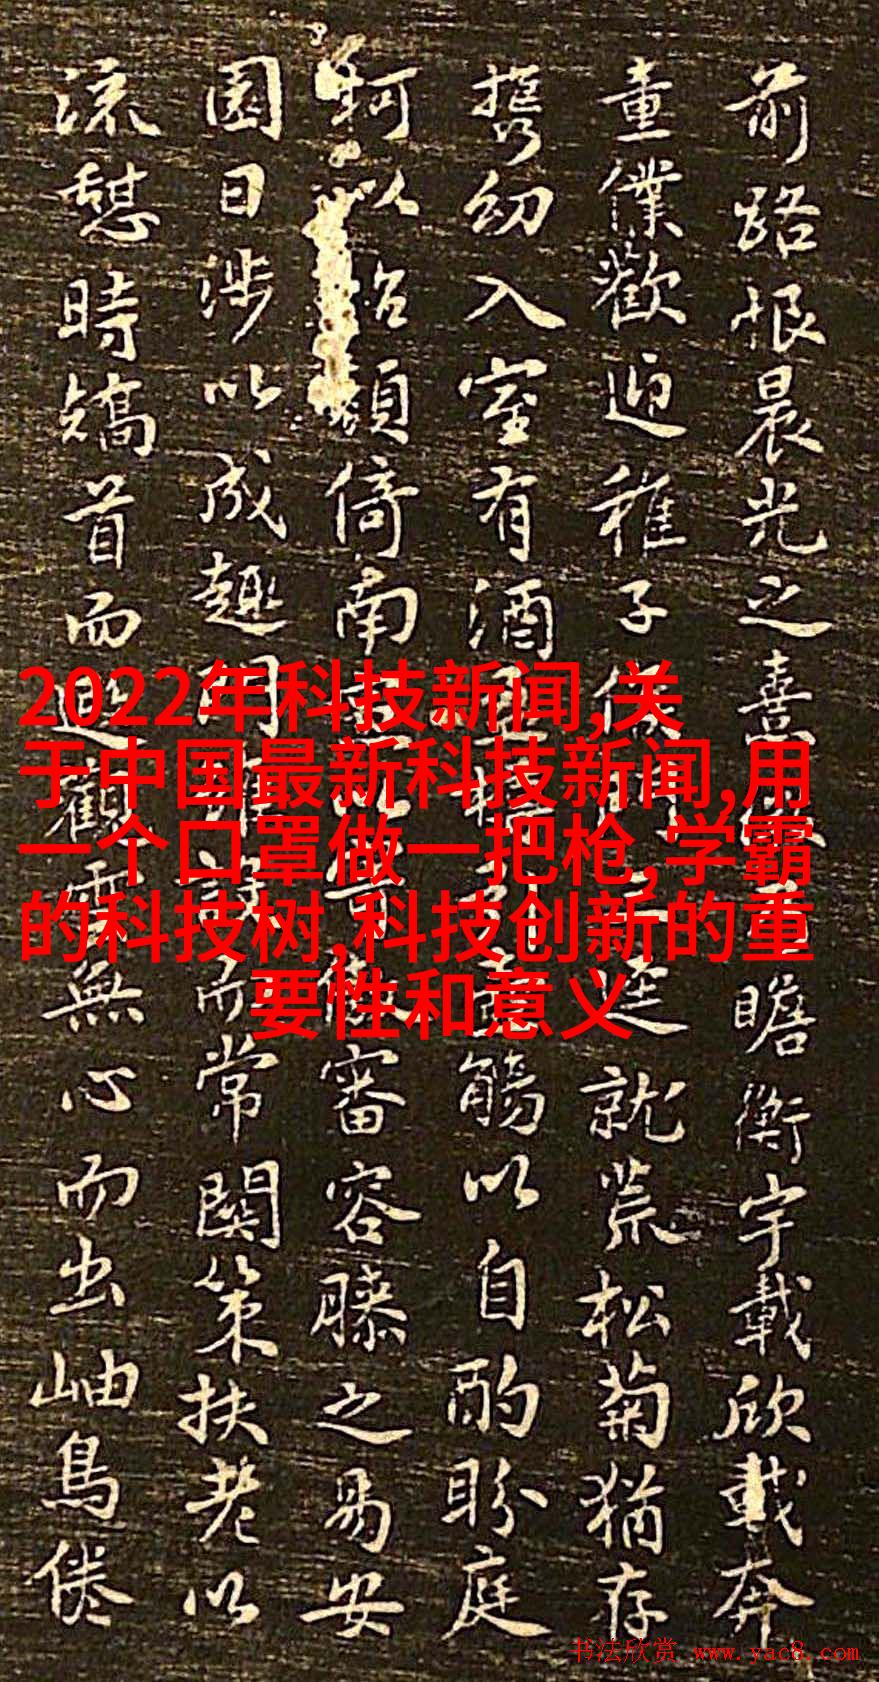 前路恨晨光之熹瞻衡宇載欣載奔
童僕歡迎稚子候門逕就荒松菊猶存
携幼入室有酒盈引壺觴以自酌眄庭
柯以怡顏倚南以審容膝之易安
園日涉以成趣門雖設而常關策扶老以
流憩時矯首而遐觀雲無心而出岫鳥倦
2022年科技新闻,关
于中国最新科技新闻,用
一个口罩做一把枪,学霸
的科技树,科技创新的重
要性和意义
书法欣赏 www.yac8.com